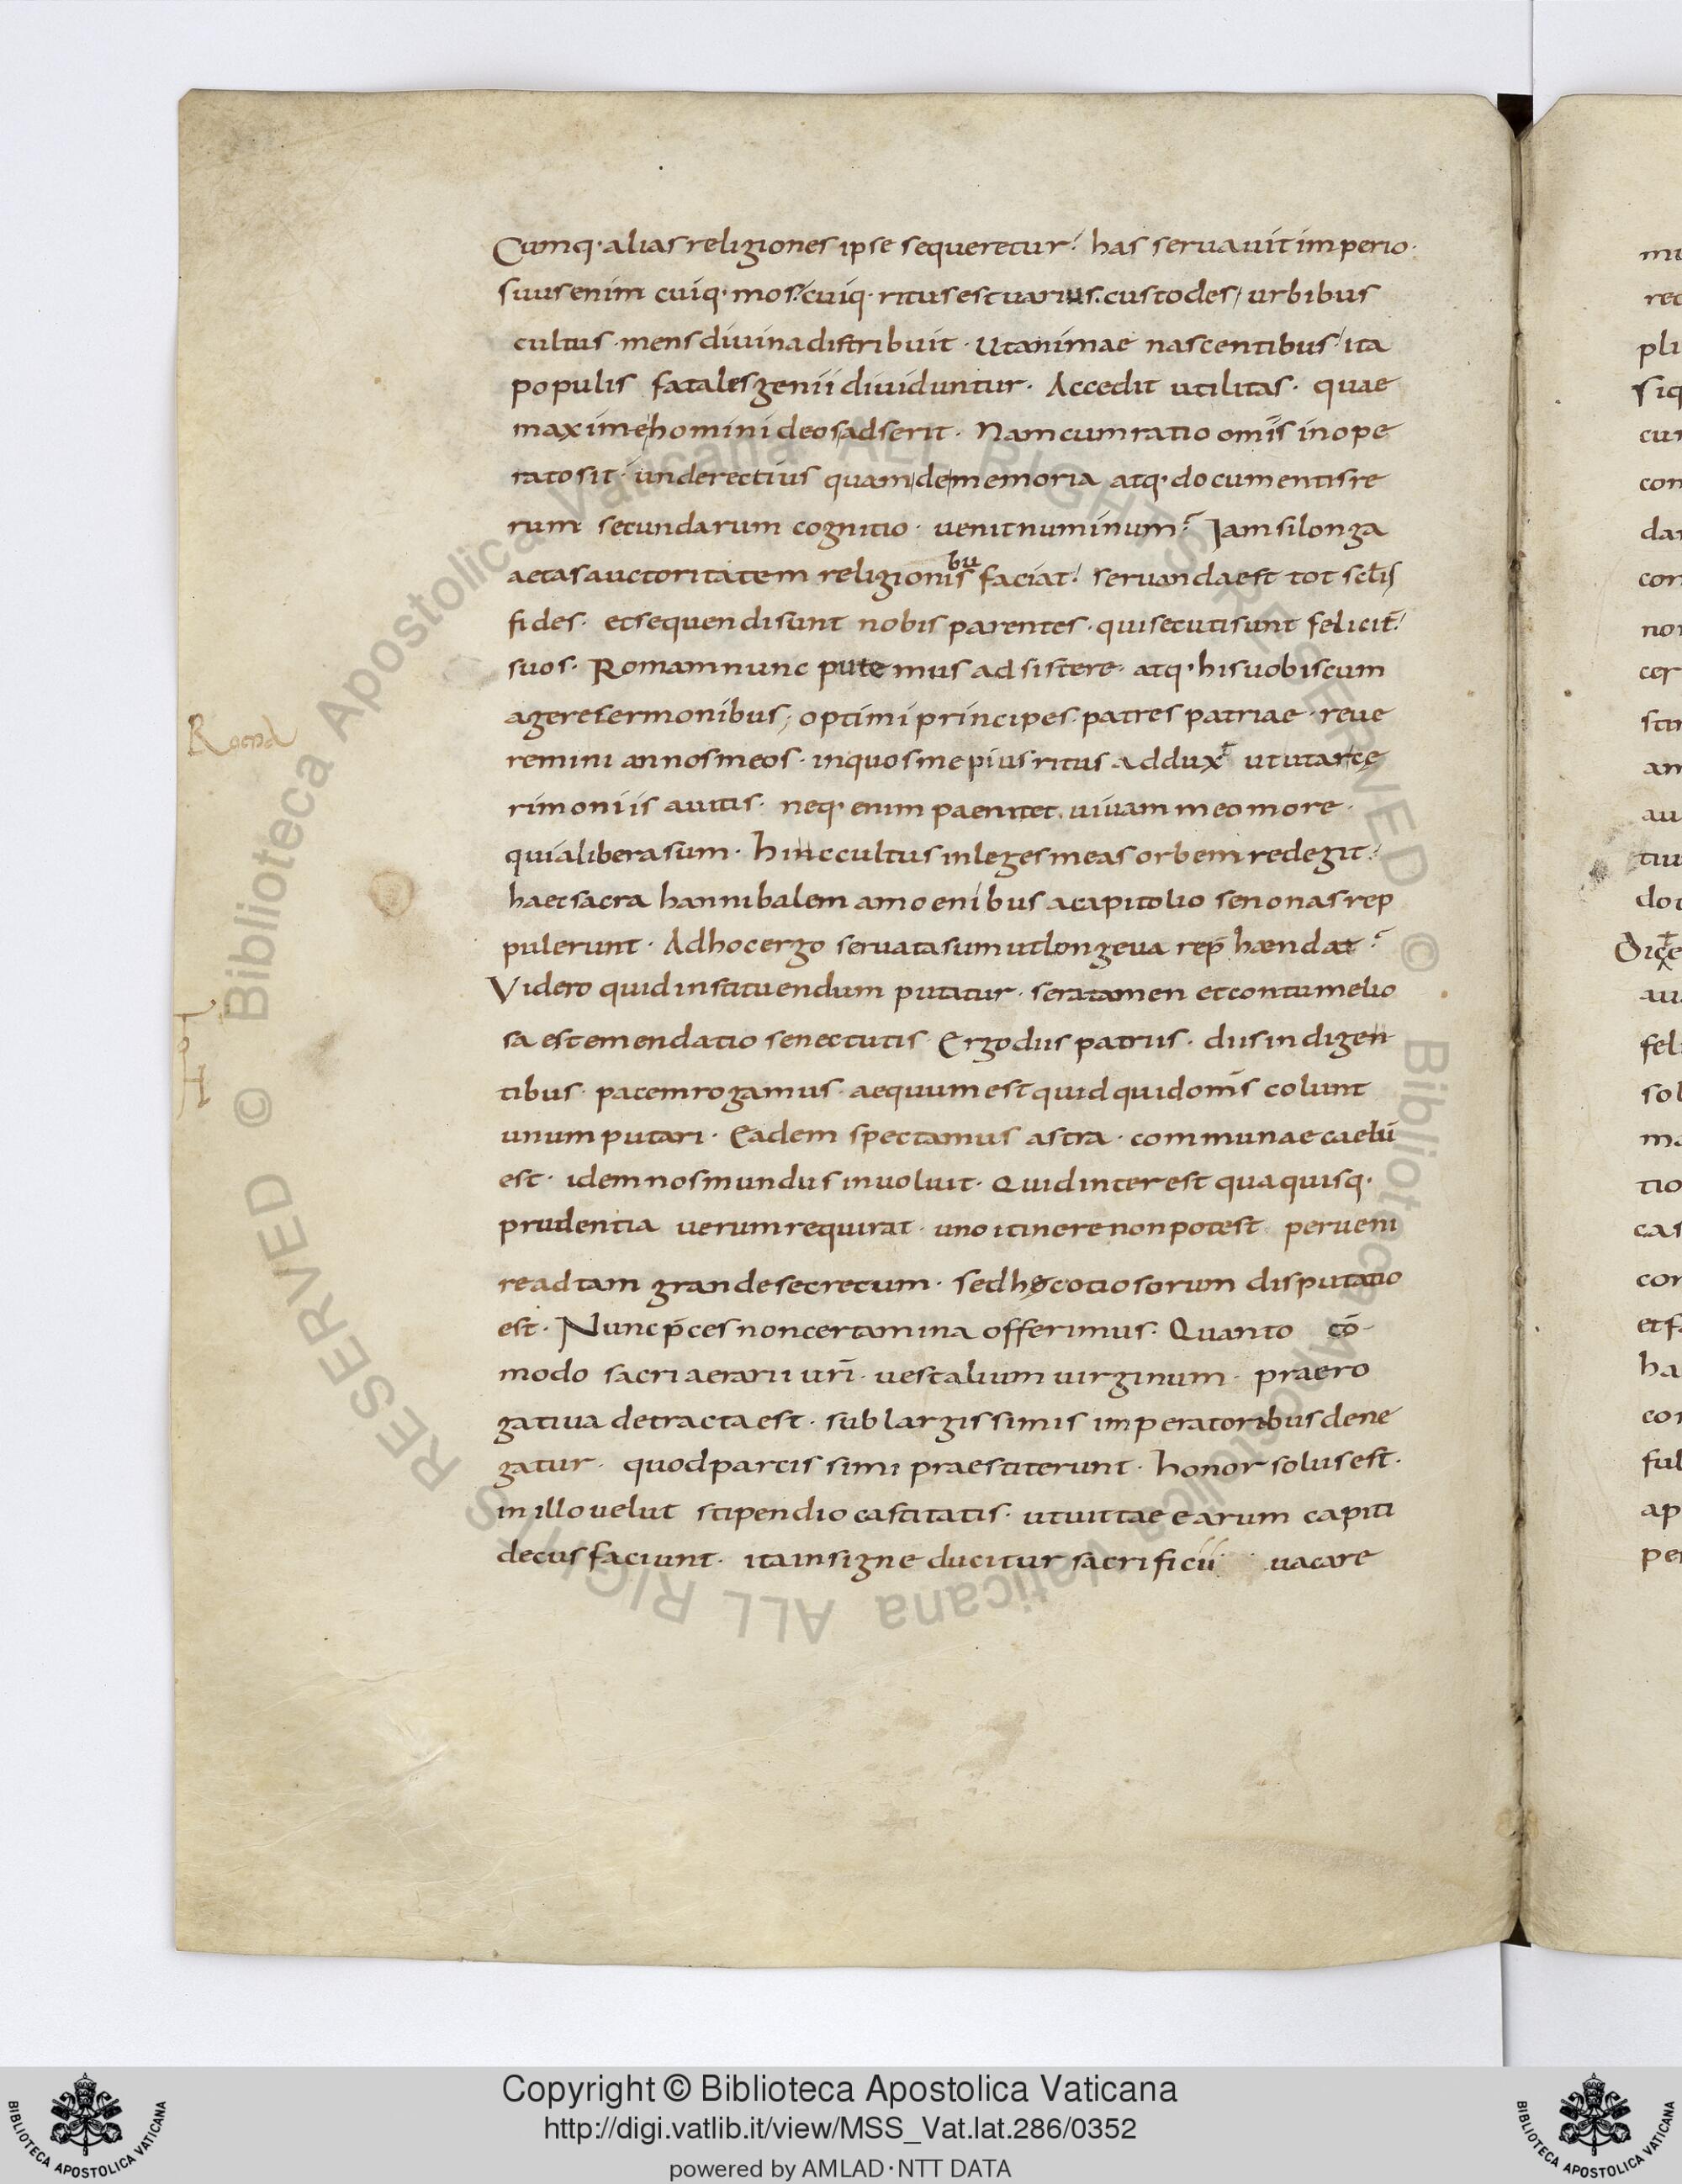 Cumq· alias religiones ipse sequeretur· has seruauit imperio·
suus enim cuiq· mos· cuiq· ritus est uarius· custodes urbibus
cultus· mens diuina distribuit· Ut animae nascentibus ita
populis fatales genii diuiduntur· Accedit utilitas· quae
maxime homini deos adserit· Nam cum ratio om̅is in ope
rato sit· unde rectius quam de memoria atq· documentis re
rum secundarum cognitio· uenit numinum? Jam si longa
aetas auctoritatem religionibus faciat· seruanda est tot sc̅lis
fides· et sequendi sunt nobis parentes· qui secuti sunt felicit̅
suos· Romam nunc putemus adsistere· atq· his uobiscum
agere sermonibus; optimi principes· patres patriae· reue
remini annos meos· in quos me pius ritus addux̅ ut utar ce
rimoniis auitis· neq· enim paenitet· uiuam meo more·
quia libera sum· hinc cultus in leges meas orbem redegit·
haec sacra hannibalem a moenibus a capitolio senonas rep
pulerunt· Ad hoc ergo seruata sum ut longeua rep̅hændar?
Videro quid instituendum putatur· sera tamen et contumelio
sa est emendatio senectutis· Ergo diis patriis· diis indigen
tibus· pacem rogamus· aequum est quidquid om̅s colunt
unum putari· Eadem spectamus astra· communae caelu̅
est· idem nos mundus inuoluit· Quid interest qua quisq·
prudentia uerum requirat· uno itinere non potest perueni
re ad tam grande secretum· sed hęc otiosorum disputatio
est· Nunc p̅ces non certamina offerimus· Quanto co̅
modo sacri aerarii uri̅· uestalium uirginum· praero
gatiua detracta est· sub largissimis imperatoribus dene
gatur· quod parcissimi praestiterunt· honor solus est·
in illo uelut stipendio castitatis· ut uittae earum capiti
decus faciunt· ita insigne ducitur sacrificii uacare
Roma
pli
cum
con
fel
sol
tio
cas
Copyright © Biblioteca Apostolica Vaticana
http://digi.vatlib.it/view/MSS_Vat.lat.286/0352
powered by AMLAD·NTT DATA
BIBLIOTECA APOSTOLICA VATICANA
BIBLIOTECA APOSTOLICA VATICANA
© Biblioteca Apostolica Vaticana ALL RIGHTS RESERVED © Biblioteca Apostolica Vaticana ALL RIGHTS RESERVED